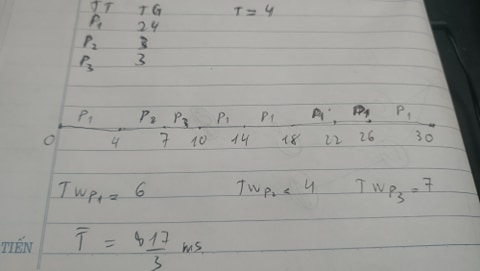 TT TG T = 4
P1 24
P2 3
P3 3
P1 P2 P3 P1 P1 P1 P1 P1
0 4 7 10 14 18 22 26 30
TWP1 = 6 TWP2 = 4 TWP3 = 7
T̅ = 17/3 ms
TIẾN